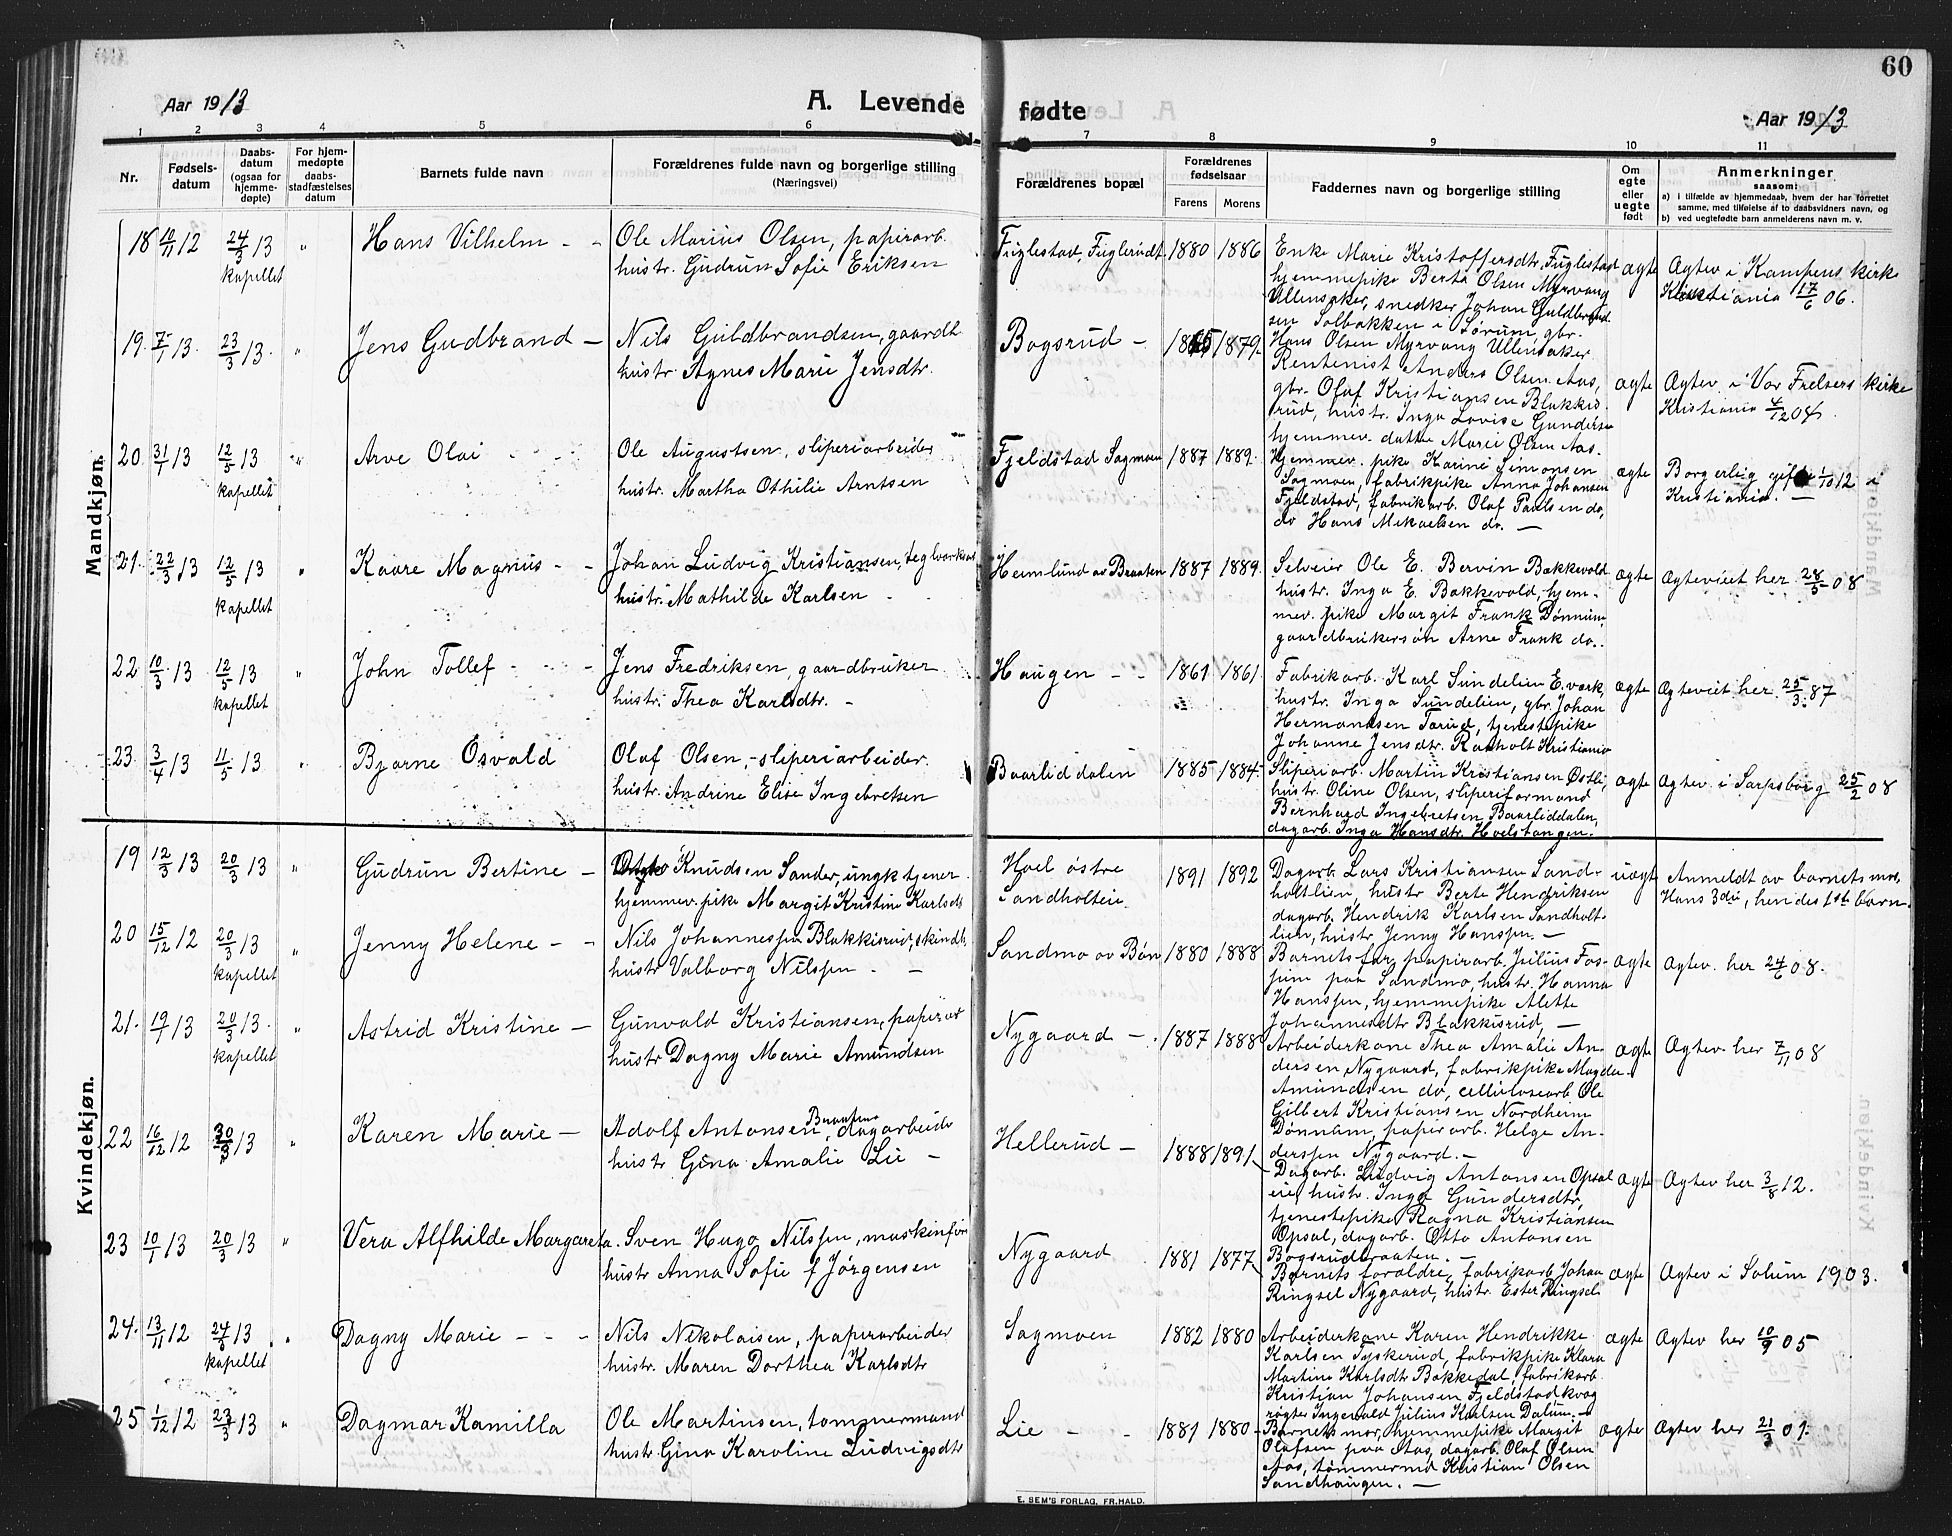 60
Aar 1913
A. Levende
fødte
Aar 1913
1 2 3 4 5 6 7 8 9 10 11
Nr.
Fødsels-
datum
Daabs-
datum
(ogsaa for
hjemme-
døpte)
For hjem-
medøpte
daabs-
stadfæstelses
datum
Barnets fulde navn
Forældrenes fulde navn og borgerlige stilling
(Næringsvei)
Forældrenes bopæl
Forældrenes
fødselsaar
Farens Morens
Faddernes navn og borgerlige stilling
Om
egte
eller
uegte
født
Anmerkninger
saasom:
a) i tilfælde av hjemmedaab, hvem der har forrettet
samme, med tilføielse af to daabsvidners navn, og
b) ved uegtefødte barn anmelderens navn m. v.
Mandkjøn.
18 10/11 12 24/3 13 " Hans Vilhelm - - Ole Marius Olsen, papirarb.
kapellet hustr. Gudrun Sofie Eriksen
Fuglestad, Fuglerudt. 1880 1886
Enke Marie Kristoffersdtr, Fuglestad
hjemmepike Berta Olsen Myrvang
Ullensaker, snedker Johan Guldbrand-
sen Solbakken i Sørum, gbr.
Hans Olsen Myrvang Ullensaker
ægte
Ægtev i Kampens kirke
Kristiania 17/6 06.
19. 7/1 13. 23/3 13. " Jens Gudbrand - Nils Guldbrandsen, gaardb.
hustr. Agnes Marie Jensdtr.
Bogsrud - 1865 1879.
Rentenist Anders Olsen Aas,
gbr. Olaf Kristiansen Blakkis-
rud, hustr. Inga Lovise Gunders
hjemmev. datter Marie Olsen Aas.
ægte
Ægtev. i Vor Frelsers kirke
Kristiania 4/12 04.
20. 31/1 13 12/5 13 " Arve Olai Ole Augustsen, sliperiarbeider
kapellet hustr. Martha Othilie Arntsen
Fjeldstad Sagmoen 1887 1889.
Hjemmev. pike Karine Simonsen
Sagmoen, fabrikpike Anna Johansen
Fjeldstad, fabrikarb. Olaf Paulsen do,
do Hans Mikaelsen do. -
ægte
Borgerlig gift 1/10 12 i
Kristiania. -
21. 22/3 13 12/5 13 " Kaare Magnus - - Johan Ludvig Kristiansen, teglverksar
kapellet hustr. Mathilde Karlsen
Heimlund av Braaten 1887 1889.
Selveier Ole E. Bervin Bakkevold
hustr. Inga E. Bakkevold, hjem-
mev. pike Margit Frank Dønnum,
gaardbrukersøn Arne Frank do.
ægte
Ægteviet her 28/5 08
22 10/3 13 12/5 13 " John Tollef Jens Fredriksen, gaardbruker
kapellet hustr. Thea Karlsdtr. -
Haugen - - 1861 1861
Fabrikarb. Karl Sundelien E.verk,
hustr. Inga Sundelien, gbr. Johan
Hermansen Tarud, tjenestepike
Johanne Jensdtr. Raaholt Kristiania
ægte
Ægteviet her 25/3 87
23. 3/4 13 11/5 13 " Bjarne Osvald Olaf Olsen, sliperiarbeider.
hustr. Andrine Elise Ingebretsen
Baarliddalen 1885 1884.
Sliperiarb. Martin Kristiansen Østli,
hustr. Oline Olsen, sliperiformand
Bernhard Ingebretsen Baarliddalen,
dagarb. Inga Hansdtr. Hoelstangen.
ægte
Ægtev. i Sarpsborg 25/2 08
Kvindekjøn.
19 12/3 13 20/3 13 " Gudrun Bertine - Knudsen Sander, ungk tjener
hjemmev. pike Margit Kristine Karlsdtr
Hoel østre
Sandholtlien. 1891 1892
Dagarb. Lars Kristiansen Sand-
holtlien, hustr Berte Hendriksen
dagarb. Hendrik Karlsen Sandholt-
lien, hustr Jenny Hanssen. -
uægte
Anmeldt av barnets mor.
Hans 3die, hendes 1ste barn.
20 15/12 12 20/3 13 " Jenny Helene - - Nils Johannessen Blakkisrud, skindh.
kapellet hustr Valborg Nilssen - -
Sandmo av Bøn 1880 1888
Barnets far, papirarb. Julius Fos-
sum paa Sandmo, hustr. Hanna
Hanssen, hjemmepike Alette
Johannesdtr Blakkisrud, -
ægte
Ægtev. her 24/6 08.
21. 19/1 13 20/3 13. " Astrid Kristine - Gunvald Kristiansen, papirar
kapellet hustr Dagny Marie Amundsen
Nygaard - 1887 1888
Arbeiderkone Thea Amalie An-
dersen Nygaard, fabrikpike Magda
Amundsen do, cellulosearb Ole
Gilbert Kristiansen Nordheim
Dønnum, papirarb. Helge An-
derssen Nygaard. -
ægte
Ægtev. her 7/11 08
22 16/12 12 30/3 13 " Karen Marie - Adolf Antonsen Braaten, dagarbeider
hustr Gina Amalie Lie -
Hellerud - 1888 1891
Dagarb. Ludvig Antonsen Opsal
eie, hustr. Inga Gundersdtr,
tjenestepike Ragna Kristiansen
Opsal, dagarb. Otto Antonsen
Bogsrudbraaten. -
ægte
Ægtev her 3/8 12.
23 10/1 13 20/3 13 " Vera Alfhilde Margareta. Sven Hugo Nilssen, maskinfør
hustr Anna Sofie f Jørgensen
Nygaard 1881 1877
Barnets forældre, fabrikarb Johan
Ringsel Nygaard, hustr. Ester Ringsel
ægte
Ægtev i Solum 1903.
24. 13/11 12 24/3 13. " Dagny Marie - - - Nils Nikolaisen, papirarbeider
kapellet hustr. Maren Dorthea Karlsdtr
Sagmoen 1882 1880
Arbeiderkone Karen Hendrikke
Karlsen Tyskerud, fabrikpike Klara
Martine Karlsdtr Bakkedal, fabrikarb.
Kristian Johansen Fjeldstad kvæg
røgter Ingevald Julius Karlsen Dalum. -
ægte
Ægtev her 10/9 05
25 1/12 12 23/3 13 " Dagmar Kamilla Ole Martinsen, tømmermand
hustr Gina Karoline Ludvigsdtr
Lie - - 1881 1880
Barnets mor, hjemmepike Margit
Olafsen paa Aas, dagarb. Olaf Olsen
Aas, tømmermd Kristian Olsen
Sandhaugen. -
ægte
Ægtev her 21/3 07.
E. SEM'S FORLAG, FR.HALD.